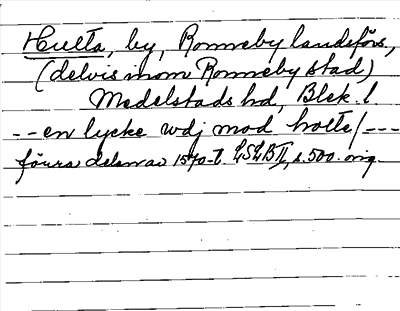 Hulta, by, Ronneby landsförs,
(delvis inom Ronneby stad)
Medelstads hd, Blek. l
-- en lycke wdj mod holte/---
förra delen av 1570-t. LSLB II, s. 500. orig.